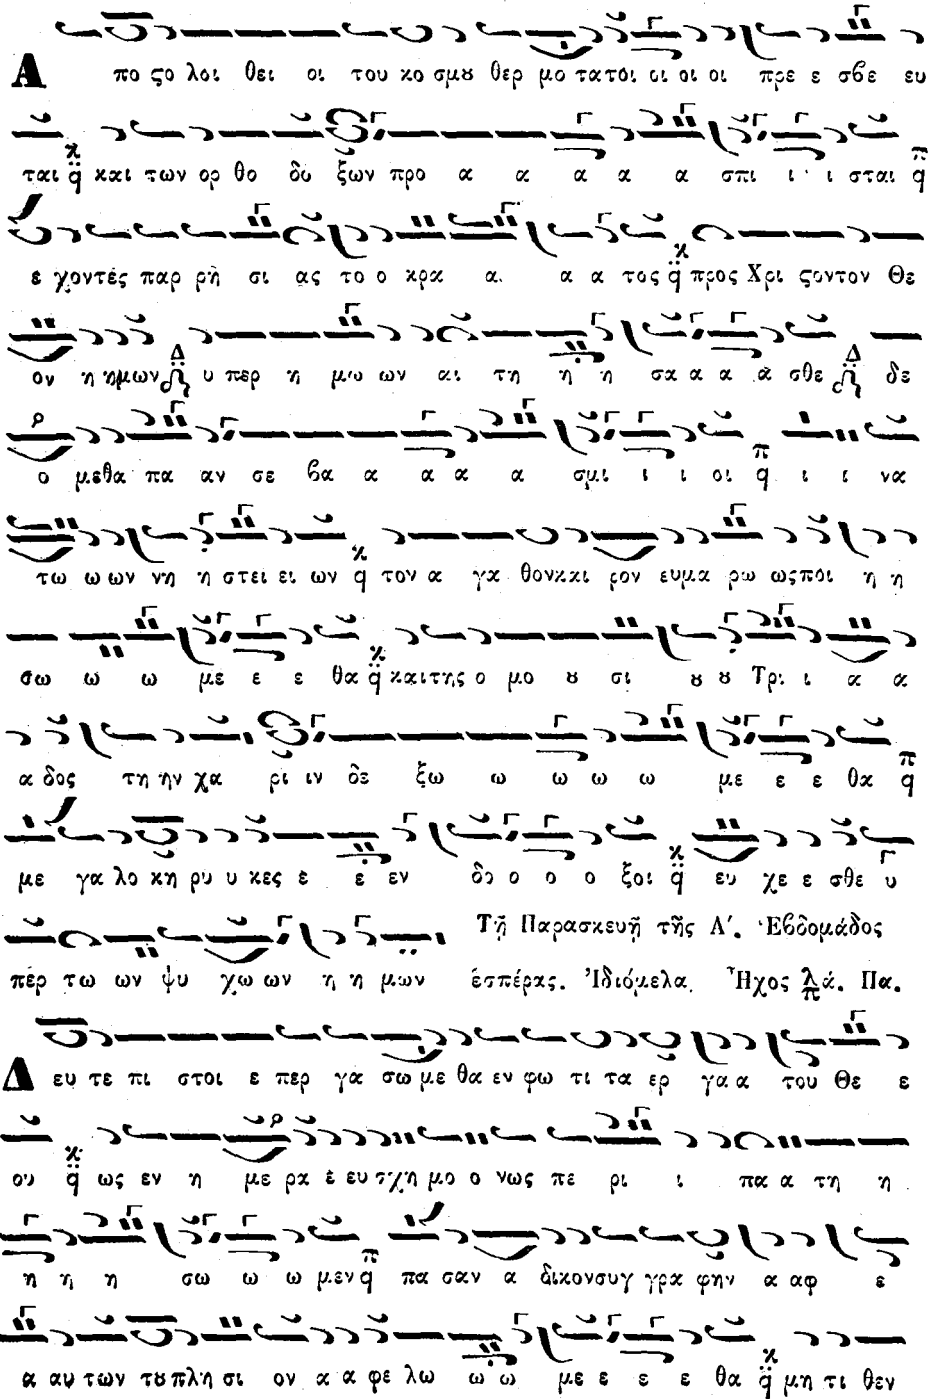 Α πο ϛο λοι θει οι του κο σμȣ θερ μο τατοι οι οι οι πρε ε σβε ευ
ται q̈ και των ορ θο δο ξων προ α α α α α σπι ι ι σται q
ε χοντές παρ ρη σι ας το ο κρα α α α τος q̈ προς Χρι ϛοντον Θε
ον η ημων Δ υ περ η μω ων αι τη η η σα α α α σθε Δ δε
ο μεθα πα αν σε βα α α α α σμι ι ι οι q ι ι να
τω ω ων νη η στει ει ων q τον α γα θονκαι ρον ευμα ρω ωςποι η η
σω ω ω με ε ε θα q̈ καιτης ο μο ȣ σι ȣ ȣ Τρι ι α α
α δος τη ην χα ρι ιν δε ξω ω ω ω ω με ε ε θα q
με γα λο κη ρυ υ κες ε ε εν δο ο ο ο ξοι q̈ ευ χε ε σθε υ
πέρ τω ων ψυ χω ων η η μων Τῇ Παρασκευῇ τῆς Α´. Ἑβδομάδος
ἑσπέρας. Ἰδιόμελα. Ἦχος λ π ά. Πα.
Δ ευ τε πι στοι ε περ γα σω με θα εν φω τι τα ερ γα α του Θε ε
ου q̈ ως εν η με ρα ε ευ σχη μο ο νως πε ρι ι πα α τη η
η η η σω ω ω μεν q πα σαν α δικονσυγ γρα φην α αφ ε
α αυ των τȣ πλη σι ον α α φε λω ω ω με ε ε ε θα q̈ μη τι θεν